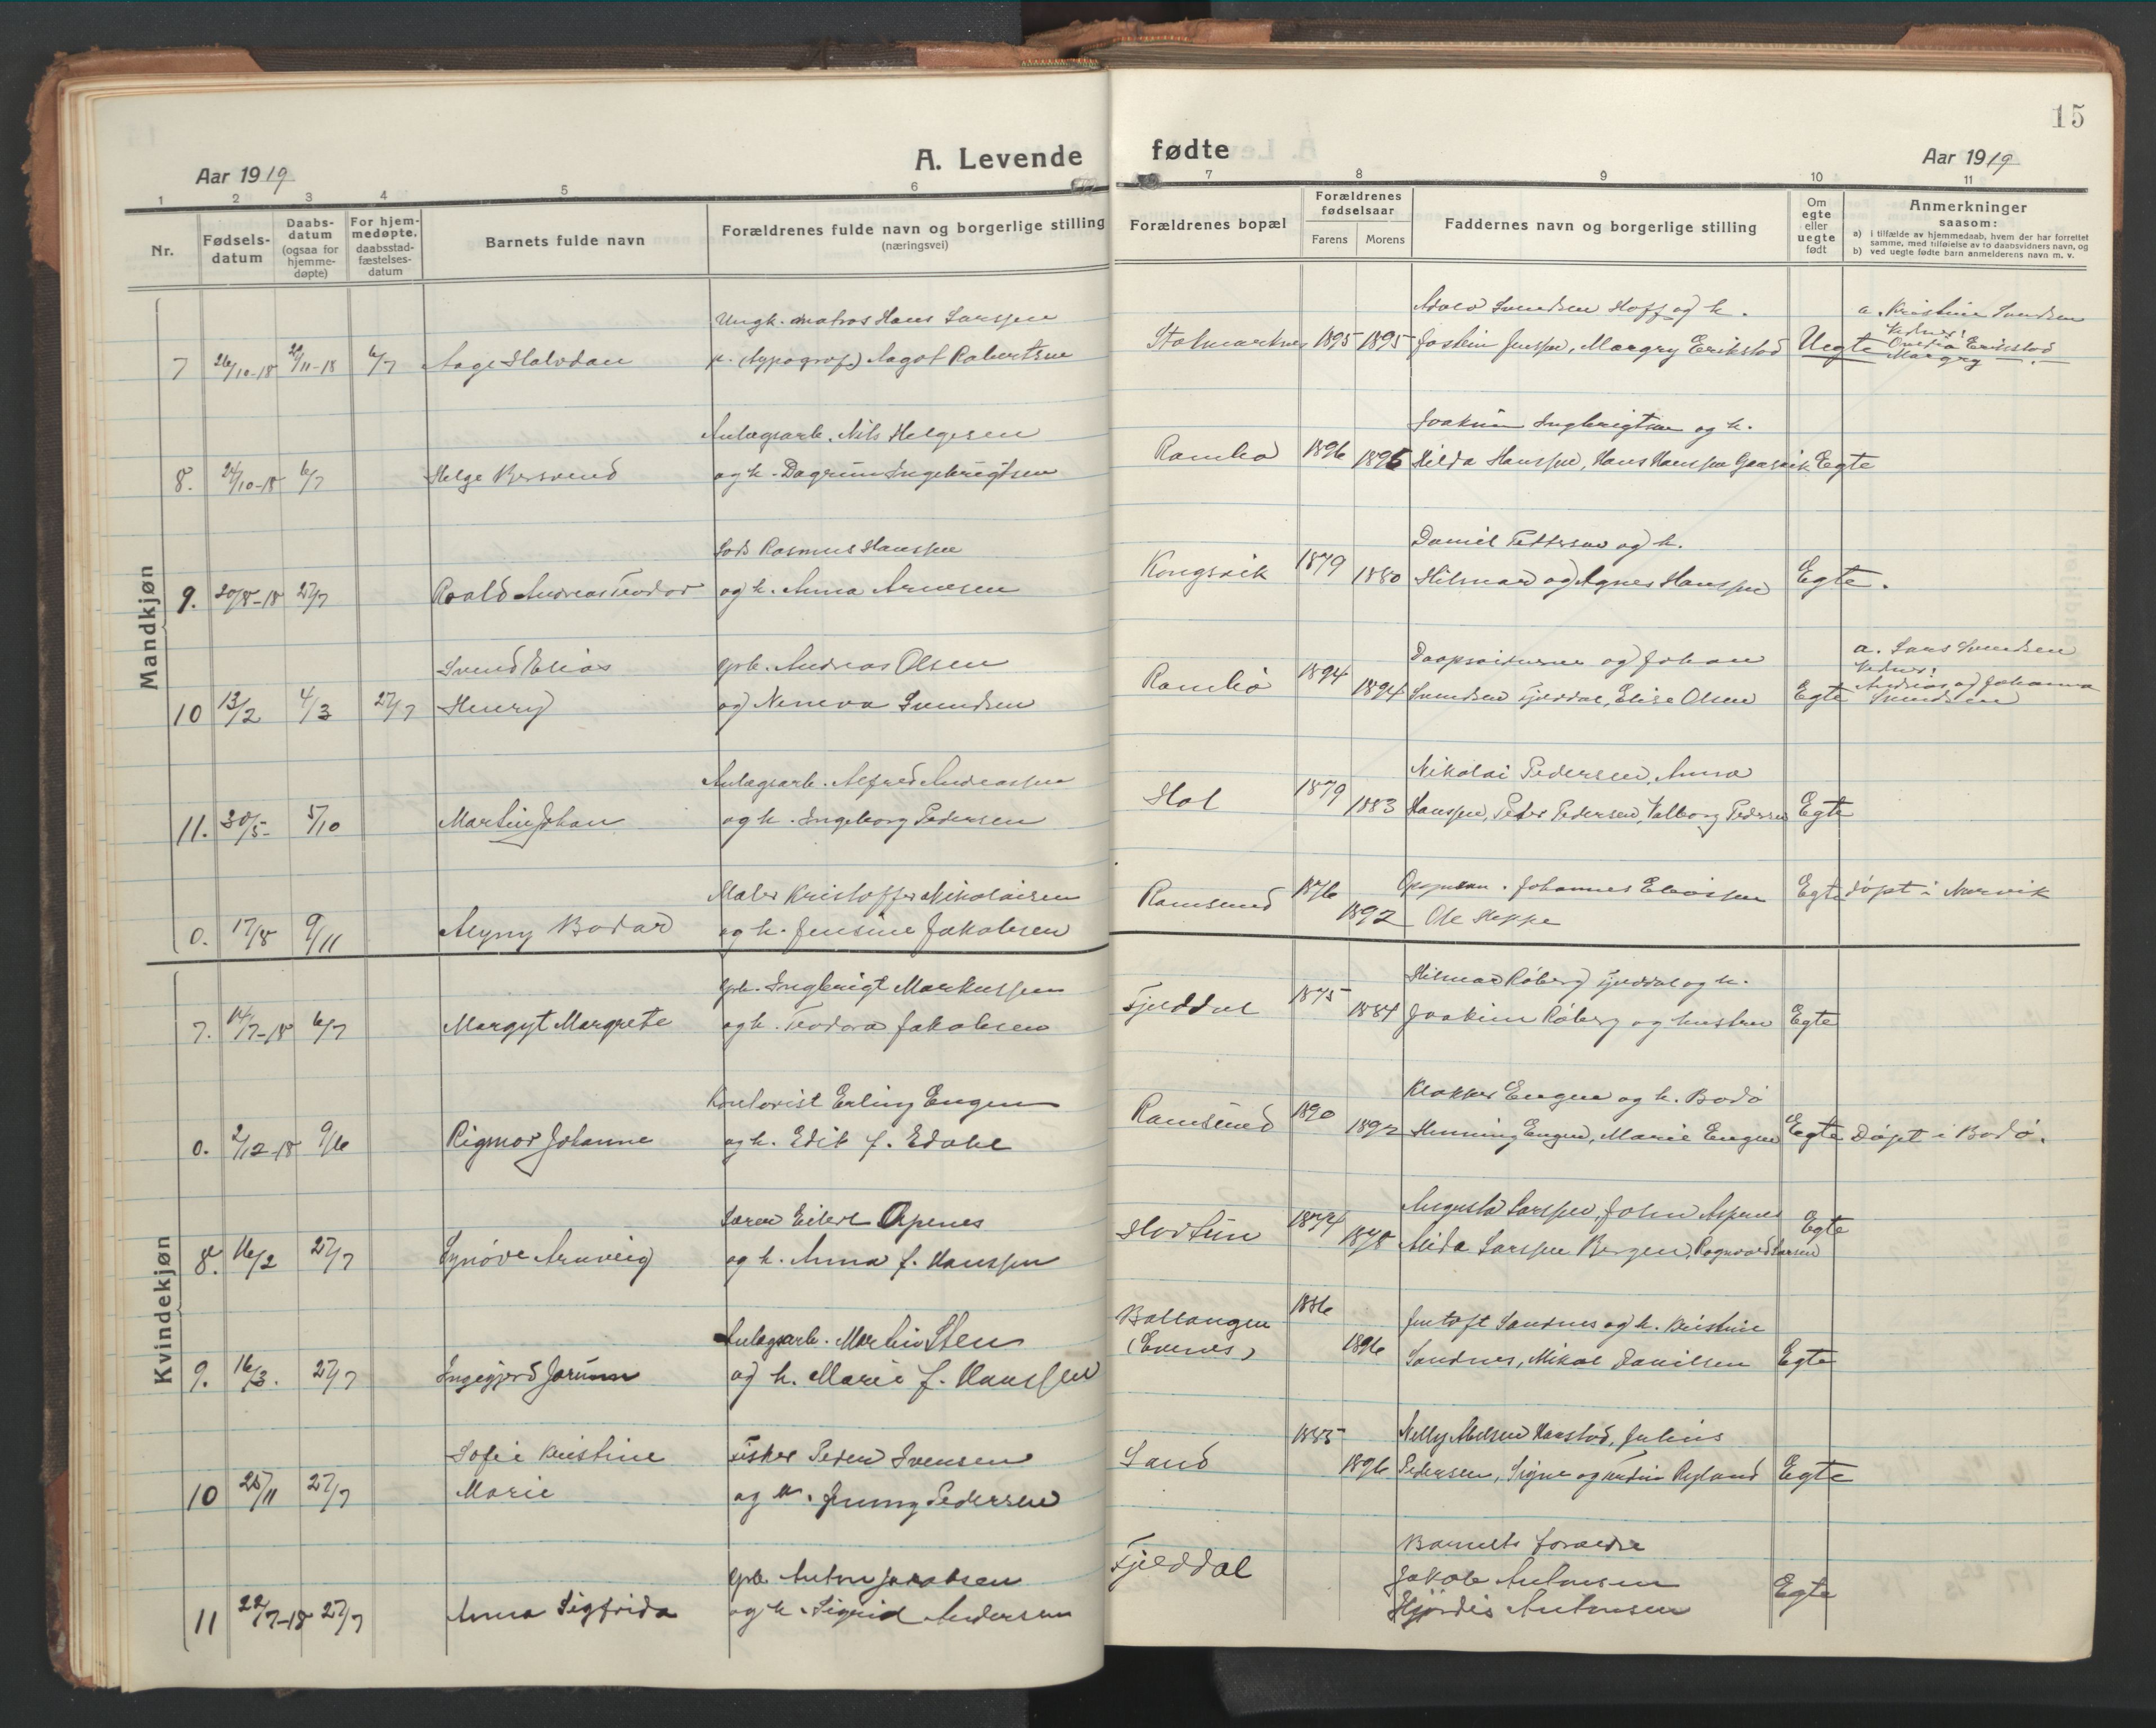 15
A. Levende fødte
Aar 1919
Aar 1919
1 2 3 4 5 6 7 8 9 10 11
Nr.
Fødsels-
datum
Daabs-
datum
(ogsaa for
hjemme-
døpte)
For hjem-
medøpte.
daabsstad-
fæstelses-
datum
Barnets fulde navn
Forældrenes fulde navn og borgerlige stilling
(næringsvei)
Forældrenes bopæl
Forældrenes
fødselsaar
Farens Morens
Faddernes navn og borgerlige stilling
Om
egte
eller
uegte
født
Anmerkninger
saasom:
a) i tilfælde av hjemmedaab, hvem der har forrettet
samme, med tilføielse av to daabsvidners navn, og
b) ved uegte fødte barn anmelderens navn m. v.
Mandkjøn
Ungk. matros Hans Larssen Svendsen Hoff og h. a. Kristine Svendsen
7 26/10-18 6/7 Aage Halvdan p. Aagot Robertsen 1895 1895 Jenssen, Margry Erikstad Uegte Vidner: Erikstad
Margry
Anlægsarb. Nils Helgesen Joakim Ingebrigtsen og h.
8. 24/10-18 6/7 Helge og h. Dagrun Ingebrigtsen Rambø 1896 1895 Hilda Hanssen, Hans Hanssen Egte
Rasmus Hanssen Daniel Pettersen og h.
9. 20/8-18 27/7 Roald Andreas Teodor og h. Anna Arnesen Kongsvik 1879 1880 Hilmar og Agnes Hanssen Egte.
Svend Elias grb. Andreas Olsen og Johan a. Lars Svendsen
Vidner:
10 13/2 4/3 27/7 Henry og Svendsen Rambø 1894 1894 Svendsen Fjelddal, Elise Olsen Egte Andreas og Johanna
Svendsen
Anlægsarb. Alfred Andreassen Nikolai Pedersen, Anna
11. 30/5- 5/10 Martin Johan og h. Ingeborg Pedersen Hol 1879 1883 Hanssen, Peter Pedersen, Valborg Pedersen Egte
Maler Kristoffer Nikolaisen Johannes Egte døpt i Narvik
0. 17/8 9/11 og h. Jensine Jakobsen Ramsund 1876 1892 Ole
Kvindekjøn
grb. Ingbrigt Markussen Hilmar Røberg Fjelddal og h.
7. 14/7-18 6/7 Margyt Margrete og h. Teodora Jakobsen Fjelddal 1875 1884 Joakim Røberg og hustru Egte
Kontorist Erling Engen Klokker Engen og h. Bodø
0. 2/12-18 9/6 Rigmor Johanne og h. Edit f. Edahl Ramsund 1890 1892 Henning Engen, Marie Engen Egte Døpt i Bodø.
Eilert Augusta Larssen, John
8. 16/2 27/7 Synøve Arnveig og h. Anna f. Hanssen 1874 1878 Alida Larssen Bergen, Ragnvald Larsen Egte
Anlægsarb. Martin Sten Ballangen 1886 Jentoft Sandnes og h. Kristine
9. 16/3. 27/7 Ingegjerd Jorunn og h. Marie f. Hanssen (Evenes) 1896 Sandnes, Mikal Danilsen Egte
Sofie Kristine Fisker Peder Svensen 1885 Nelly Harstad, Julius
10 25/11 27/7 Marie og h. Jenny Pedersen Sand 1896 Pedersen, Signe og Ryland Egte
grb. Anton Jakobsen Barnets forældre
Jakob Antonsen
11 22/7-18 27/7 Anna Sigfrida og h. Sigrid Andersen Fjelddal Hjørdis Antonsen Egte